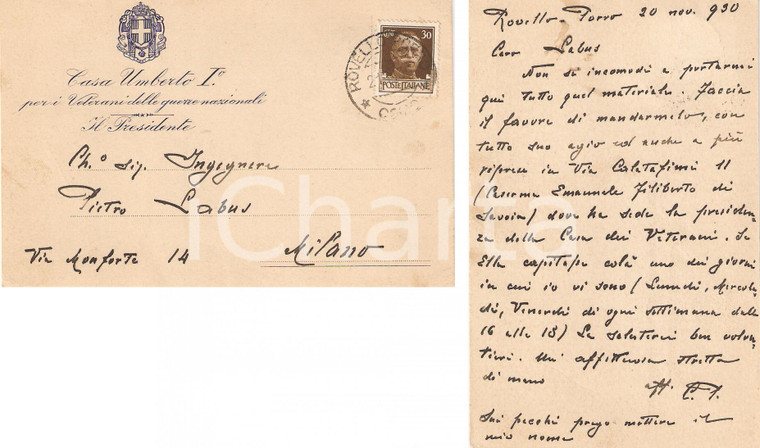 Casa Umberto Iº
per i Veterani delle guerre nazionali
Il Presidente
Ch.º Sig. Ingegnere
Pietro Labus
Via Monforte 14 Milano
ROVELL
30
POSTE ITALIANE
iCharta
Rovello-Porro 20 nov. 930
Caro Labus
Non si incomodi a portarmi
qui tutto quel materiale. Faccia
il favore di mandarmelo, con
tutto suo agio ed anche a più
riprese in Via Calatafimi 11
(Caserma Emanuele Filiberto di
Savoia) dove ha sede la presiden-
za della Casa dei Veterani. Se
Ella capitasse colà uno dei giorni
in cui io vi sono (Lunedì, Mercole-
dì, Venerdì di ogni settimana dalle
16 alle 18) La saluterei ben volen-
tieri. Un' affettuosa stretta
di mano
aff.
Sui pacchi prego mettere il
mio nome